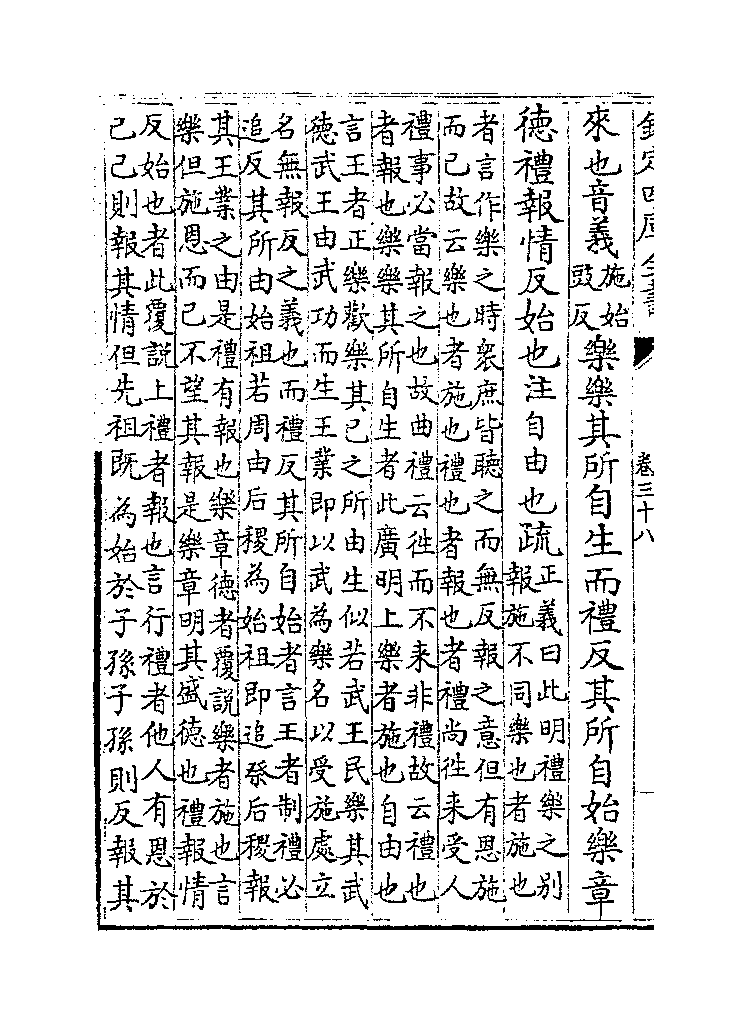 欽定四庫全書 卷三十八
來也音義施始豉反樂樂其所自生而禮反其所自始樂章
德禮報情反始也注自由也疏正義曰此明禮樂之別報施不同樂也者施也
者言作樂之時衆庶皆聽之而無反報之意但有恩施
而已故云樂也者施也禮也者報也者禮尚徃来受人
禮事必當報之也故曲禮云徃而不来非禮故云禮也
者報也樂樂其所自生者此廣明上樂者施也自由也
言王者正樂歡樂其已之所由生似若武王民樂其武
德武王由武功而生王業即以武為樂名以受施處立
名無報反之義也而禮反其所自始者言王者制禮必
追反其所由始祖若周由后稷為始祖即追祭后稷報
其王業之由是禮有報也樂章德者覆說樂者施也言
樂但施恩而已不望其報是樂章明其盛德也禮報情
反始也者此覆說上禮者報也言行禮者他人有恩於
己己則報其情但先祖既為始於子孫子孫則反報其